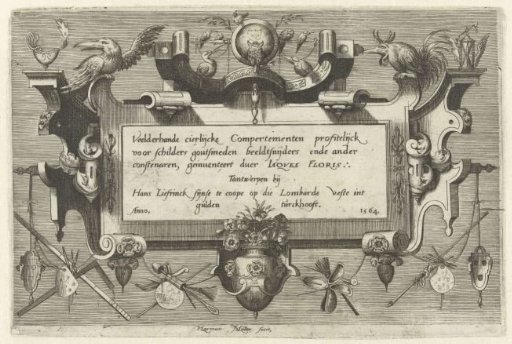 Veelderhande cierlijcke Compertementen profitelijck
voor schilders goutsmeden beeldtsnijders ende ander
constenaren, geinuenteert duer IAQVES FLORIS∴
Tantwerpen bij
Hans Liefrinck sijnse te coope op die Lombarde veste int
Anno. gulden türckhooft. 1564.
Herman fecit,